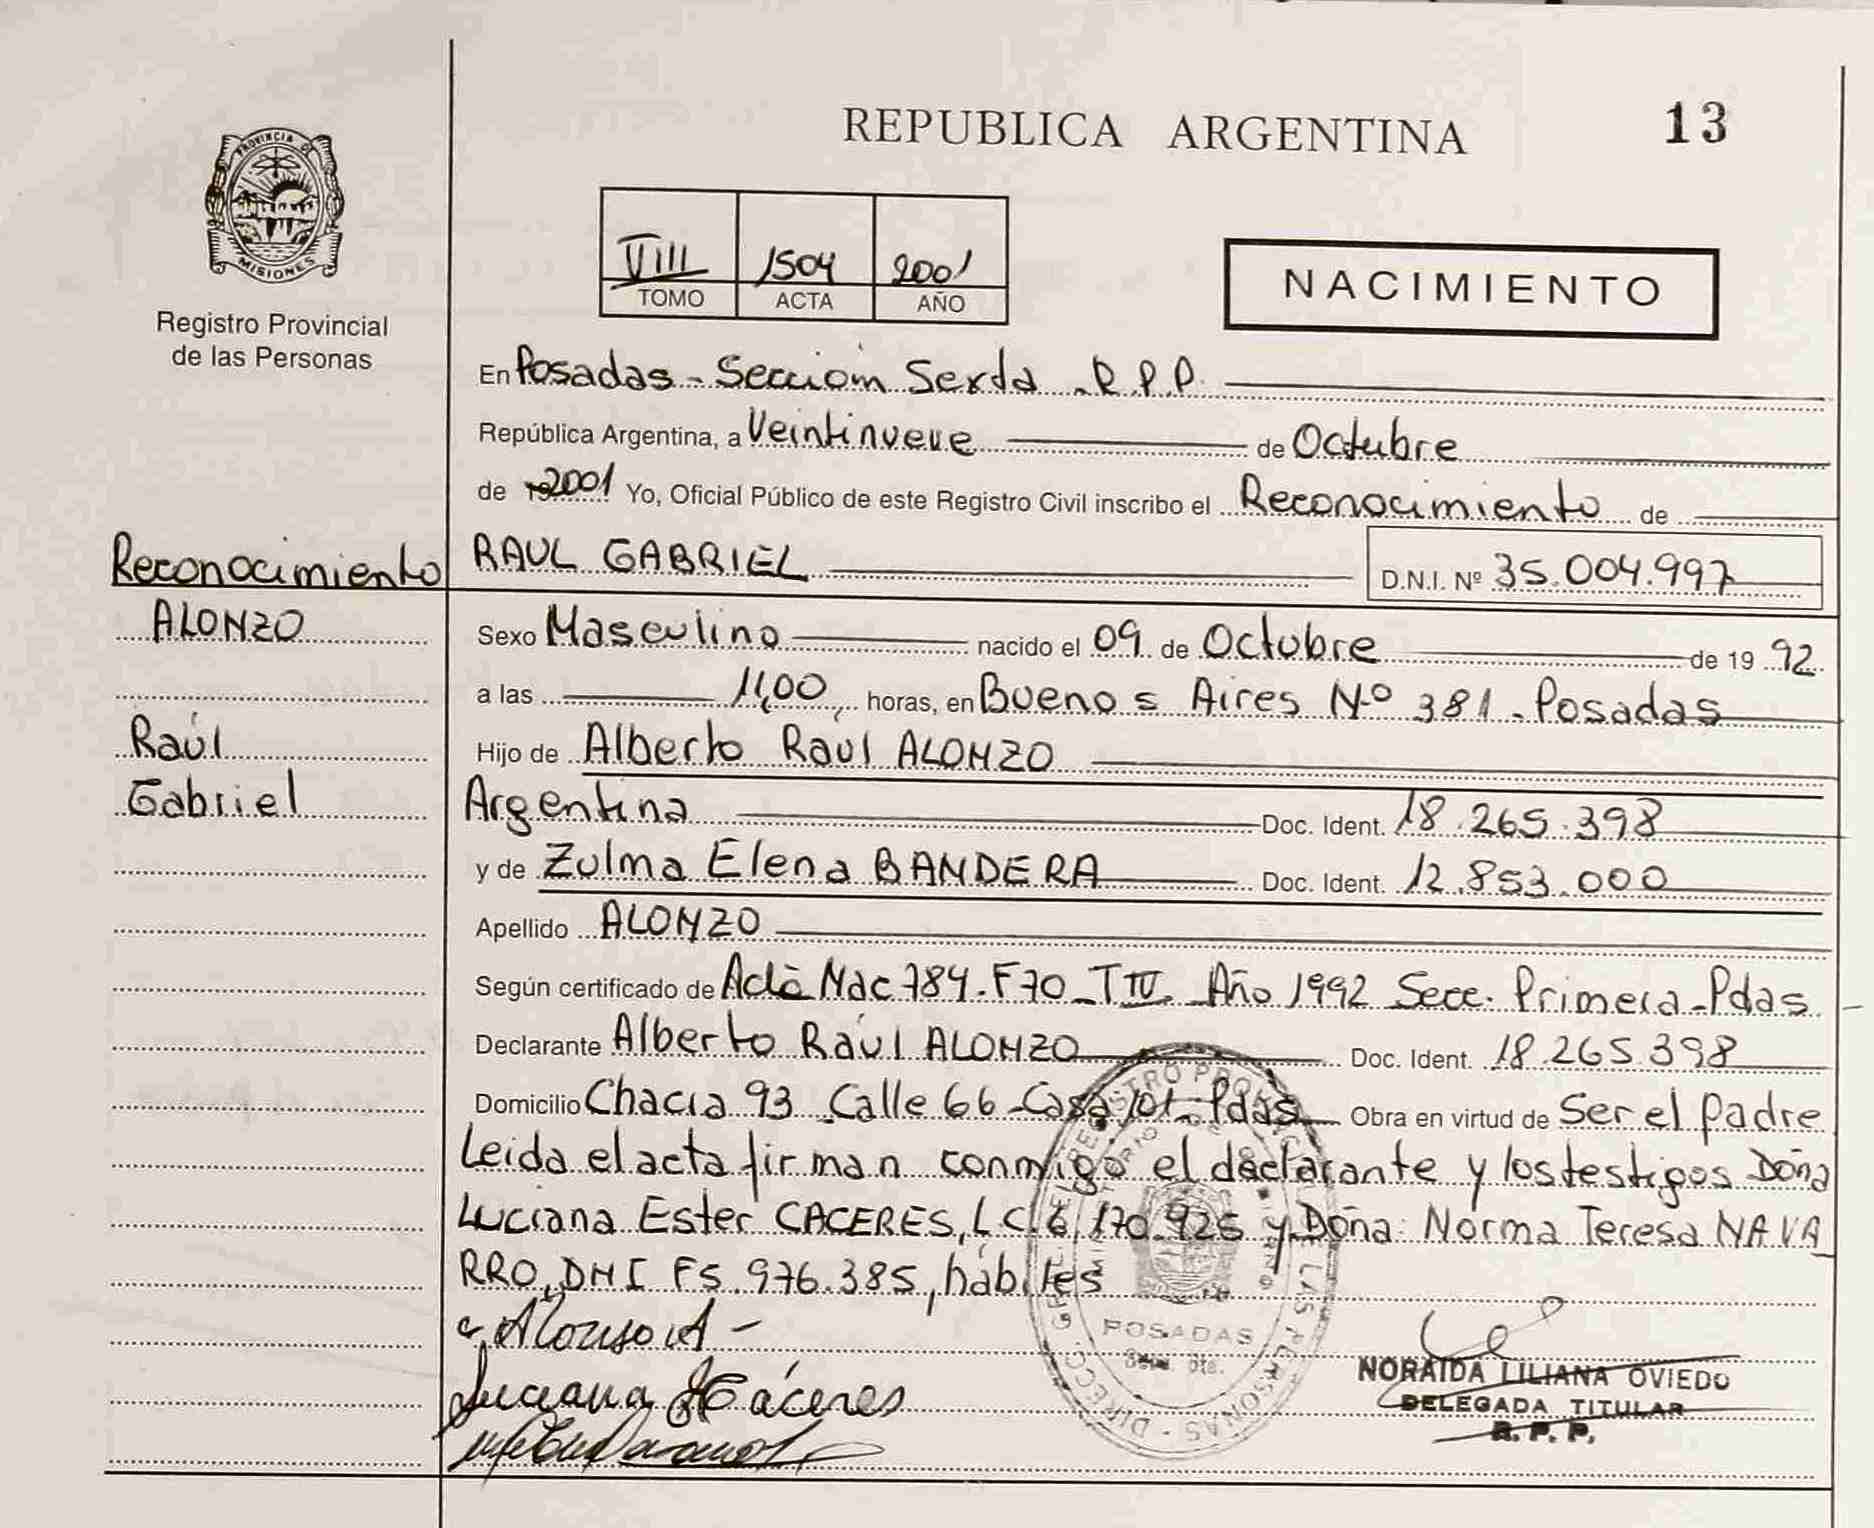 REPUBLICA ARGENTINA
13
PROVINCIA DE
MISIONES
Registro Provincial
de las Personas
VIII 1504 2001
TOMO ACTA AÑO
NACIMIENTO
En Posadas - Sección Sexta - R.P.P.
República Argentina, a Veintinueve de Octubre
de 2001 Yo, Oficial Público de este Registro Civil inscribo el Reconocimiento de
Reconocimiento
RAUL GABRIEL D.N.I. Nº 35.004.997
ALONZO
Sexo Masculino nacido el 09 de Octubre de 19 92
a las 11,00 horas, en Buenos Aires Nº 381 - Posadas
Raúl
Hijo de Alberto Raúl ALONZO
Gabriel
Argentina Doc. Ident. 18.265.398
y de Zulma Elena BANDERA Doc. Ident. 12.853.000
Apellido ALONZO
Según certificado de Acta Nac 784 - F 70 - T IV - Año 1992 Secc. Primera - Pdas -
Declarante Alberto Raúl ALONZO Doc. Ident. 18.265.398
Domicilio Chacra 93 Calle 66 - Casa 101 - Pdas Obra en virtud de Ser el padre
Leida el acta firman conmigo el declarante y los testigos Doña
Luciana Ester CACERES, L.C. 6.170.925 y Doña: Norma Teresa NAVA
RRO, DNI F5.976.385, hábiles
Alonso A -
Luciana Cáceres
POSADAS
NORAIDA LILIANA OVIEDO
DELEGADA TITULAR
R. P. P.